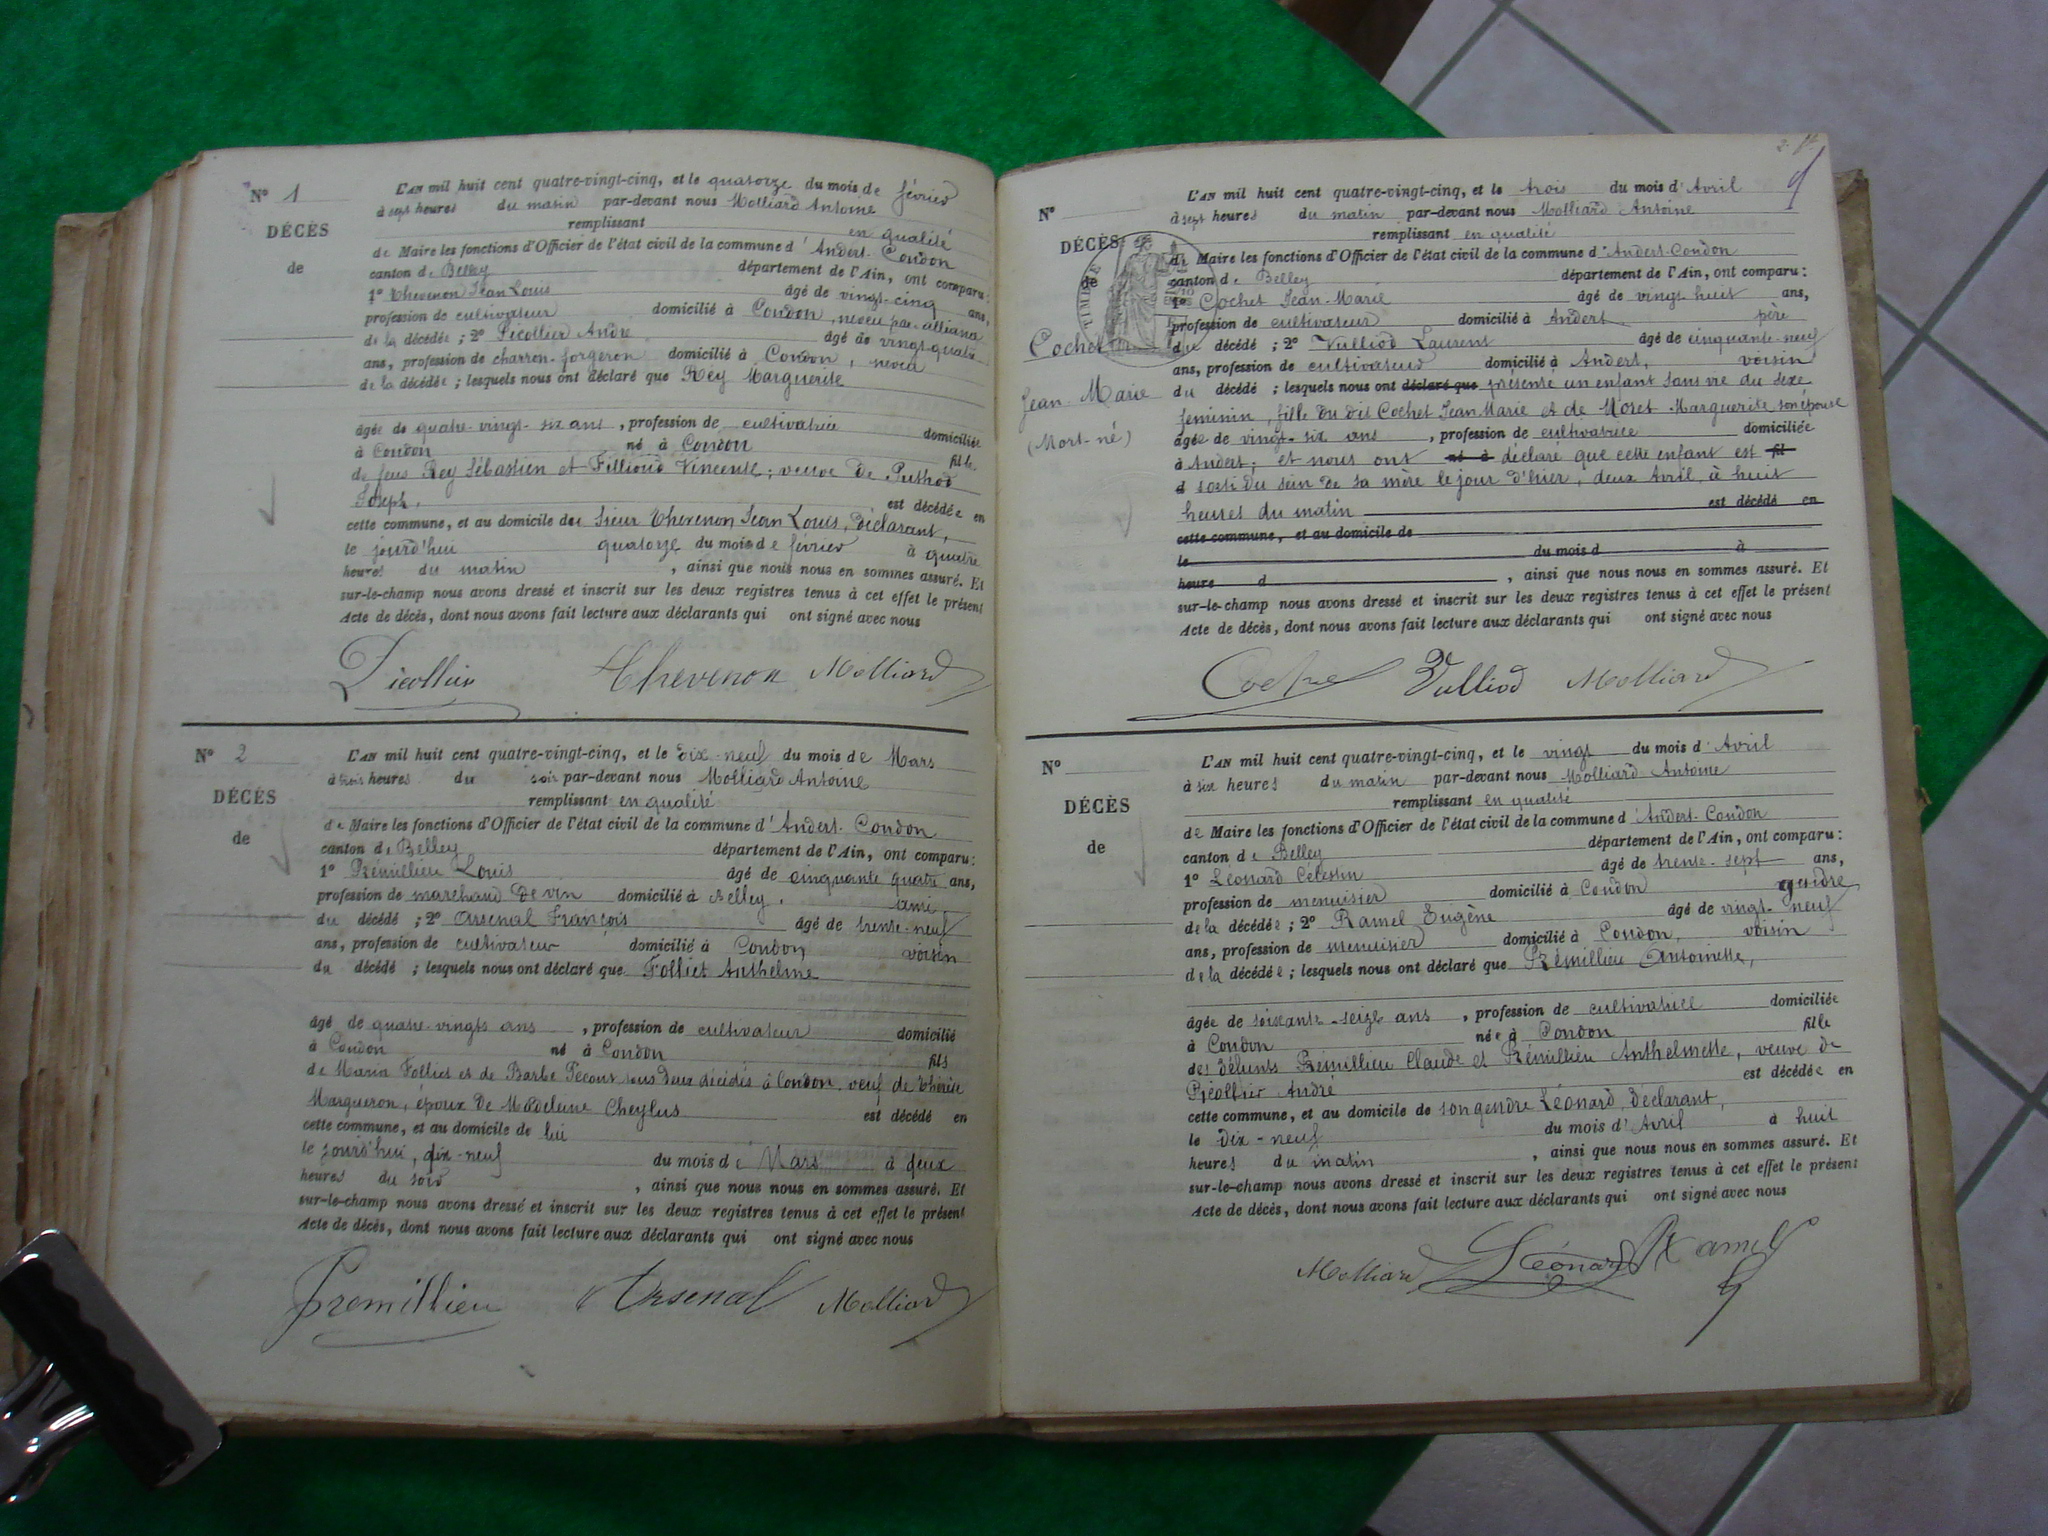 N° 1
DÉCÈS
de
L'AN mil huit cent quatre-vingt-cinq, et le quatorze du mois de février
à sept heures du matin par-devant nous Molliard Antoine
remplissant en qualité
de Maire les fonctions d'Officier de l'état civil de la commune d'Andert-Condon
canton de Belley département de l'Ain, ont comparu:
1° Thevenon Jean Louis âgé de vingt-cinq ans,
profession de cultivateur domicilié à Condon, neveu par alliance
de la décédée; 2° Picollier André âgé de vingt-quatre
ans, profession de charron-forgeron domicilié à Condon, neveu
de la décédée; lesquels nous ont déclaré que Rey Marguerite
âgée de quatre-vingt-six ans, profession de cultivatrice domiciliée
à Condon né à Condon fille
de feus Rey Sébastien et Filliond Vincente; veuve de Puthod
Joseph, est décédée en
cette commune, et au domicile du sieur Thevenon Jean Louis, déclarant,
le jourd'hui quatorze du mois de février à quatre
heures du matin, ainsi que nous nous en sommes assuré. Et
sur-le-champ nous avons dressé et inscrit sur les deux registres tenus à cet effet le présent
Acte de décès, dont nous avons fait lecture aux déclarants qui ont signé avec nous
Picollier Thevenon Molliard
N° 2
DÉCÈS
de
L'AN mil huit cent quatre-vingt-cinq, et le dix-neuf du mois de Mars
à trois heures du soir par-devant nous Molliard Antoine
remplissant en qualité
de Maire les fonctions d'Officier de l'état civil de la commune d'Andert-Condon
canton de Belley département de l'Ain, ont comparu:
1° Prémillieu Louis âgé de cinquante quatre ans,
profession de marchand de vin domicilié à Belley, ami
du décédé; 2° Arsenal François âgé de trente-neuf
ans, profession de cultivateur domicilié à Condon voisin
du décédé; lesquels nous ont déclaré que Folliet Anthelme
âgé de quatre-vingts ans, profession de cultivateur domicilié
à Condon né à Condon fils
de Marin Folliet et de Barbe Pécout tous deux décédés à Condon, veuf de Thérèse
Margueron, époux de Madeleine Cheylus est décédé en
cette commune, et au domicile de lui
le jourd'hui, dix-neuf du mois de Mars à deux
heures du soir, ainsi que nous nous en sommes assuré. Et
sur-le-champ nous avons dressé et inscrit sur les deux registres tenus à cet effet le présent
Acte de décès, dont nous avons fait lecture aux déclarants qui ont signé avec nous
Premillieu Arsenal Molliard
N°
DÉCÈS
de
TIMBRE
Cochet
Jean-Marie
(Mort-né)
L'AN mil huit cent quatre-vingt-cinq, et le trois du mois d'Avril
à sept heures du matin par-devant nous Molliard Antoine
remplissant en qualité
de Maire les fonctions d'Officier de l'état civil de la commune d'Andert-Condon
canton de Belley département de l'Ain, ont comparu:
1° Cochet Jean-Marie âgé de vingt huit ans,
profession de cultivateur domicilié à Andert père
du décédé; 2° Vulliod Laurent âgé de cinquante-neuf
ans, profession de cultivateur domicilié à Andert, voisin
du décédé; lesquels nous ont déclaré que présenté un enfant sans vie du sexe
féminin, fille du dit Cochet Jean Marie et de Moret Marguerite son épouse
âgée de vingt-six ans, profession de cultivatrice domiciliée
à Andert; et nous ont né à déclaré que cette enfant est fil
d sorti du sein de sa mère le jour d'hier, deux Avril, à huit
heures du matin est décédé en
cette commune, et au domicile de
le du mois d à
heure d, ainsi que nous nous en sommes assuré. Et
sur-le-champ nous avons dressé et inscrit sur les deux registres tenus à cet effet le présent
Acte de décès, dont nous avons fait lecture aux déclarants qui ont signé avec nous
Cochet Vulliod Molliard
N°
DÉCÈS
de
L'AN mil huit cent quatre-vingt-cinq, et le vingt du mois d'Avril
à six heures du matin par-devant nous Molliard Antoine
remplissant en qualité
de Maire les fonctions d'Officier de l'état civil de la commune d'Andert-Condon
canton de Belley département de l'Ain, ont comparu:
1° Léonard Célestin âgé de trente-sept ans,
profession de menuisier domicilié à Condon gendre
de la décédée; 2° Ramel Eugène âgé de vingt-neuf
ans, profession de menuisier domicilié à Condon, voisin
de la décédée; lesquels nous ont déclaré que Prémillieu Antoinette,
âgée de soixante-seize ans, profession de cultivatrice domiciliée
à Condon née à Condon fille
des défunts Prémillieu Claude et Prémillieu Anthelmette, veuve de
Picollier André est décédée en
cette commune, et au domicile de son gendre Léonard, déclarant,
le dix-neuf du mois d'Avril à huit
heures du matin, ainsi que nous nous en sommes assuré. Et
sur-le-champ nous avons dressé et inscrit sur les deux registres tenus à cet effet le présent
Acte de décès, dont nous avons fait lecture aux déclarants qui ont signé avec nous
Molliard Léonard Ramel